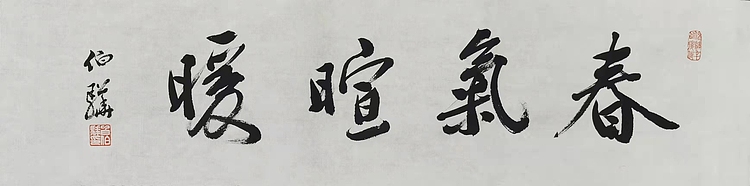 春氣暄暖
伯驊